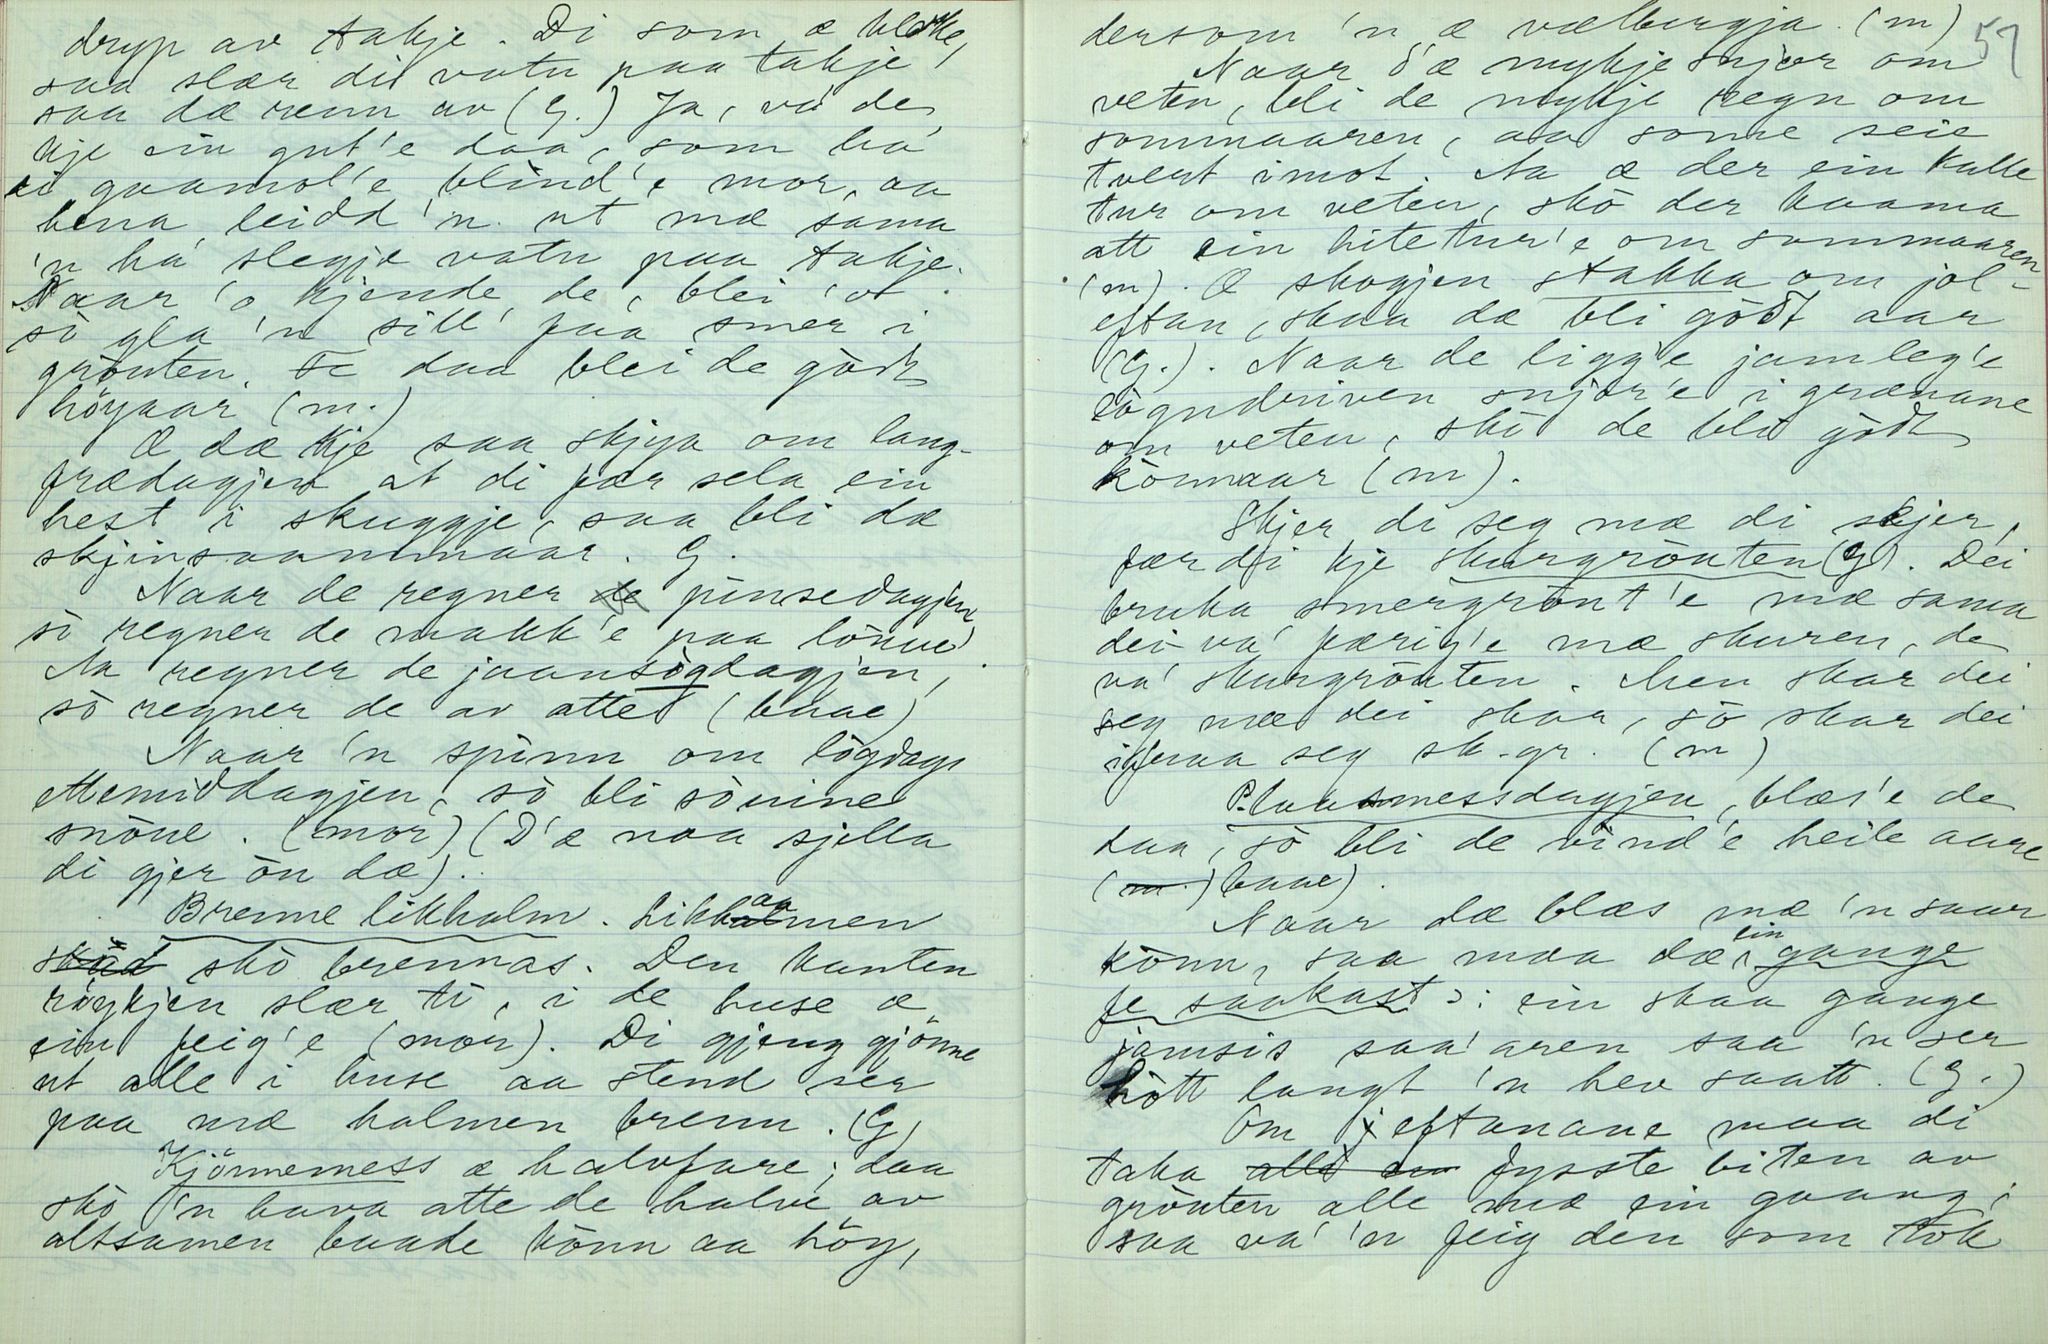 dryp av takje. Di som æ kloke,
saa slær di vatn paa takje,
saa dæ renn av (G.) Ja, va de
kje ein gut'e daa, som ha'
ei gaamol'e blind'e mor, aa
hena leidd 'n ut mæ sama
'n ha' slegje vatn paa takje.
Naar 'o kjende de, blei 'o
sò gla 'n sill' faa smer i
gròuten. Fe daa blei de gòdt
höyaar (m.)
Æ dæ kje saa skjya om lang-
frædagjen at di fær sela ein
hest i skuggje, saa bli dæ
skjinsaammaar. G.
Naar de regner pinsedagjen
sò regner de makk'e paa lòuve
Aa regner de jaansògdagjen,
sò regner de av atte (baae)
Naar 'n spinn om lògdags
ettemiddagjen, sò bli sòuine
snòue. (mor) (D'æ naa sjella
di gjer òn dæ).
Brenne likhalm. Likhaamen
skò brennas. Den kanten
röykjen slær ti, i de huse æ
ein feig'e (mor). Di gjeng gjönne
ut alle i huse aa stend ser
paa mæ halmen brenn. (G)
Kjönnemess æ halvfare; daa
skò 'n hava atte de halve av
altsamen baade könn aa höy,
57
dersom 'n æ vælbergja. (m)
Naar d'æ mykje snjor om
veten, bli de mykje regn om
sommaaren, aa some seie
tvert imot. Aa æ der ein kulle
tur om veten, skò der kaama
att ein hitetur'e om sommaaren
(m). Æ skogjen stakka om jol-
eftan, skaa dæ bli gòdt aar
(G.). Naar de ligg'e jamleg'e
lògndriven snjor'e i grænane
om veten, skò de bli gòdt
kònnaar (m).
Skjer di seg mæ di skjer,
fær di kje skurgròuten (G). Dei
bruka smergròut'e mæ sama
dei va' færig'e mæ skuren, de
va' skurgròuten. Men skar dei
seg mæ dei skar, sò skar dei
ifraa seg sk.gr. (m)
Plaasmessdagjen, blæs'e de
daa, sò bli de vind'e heile aare
(m.) baae).
Naar dæ blæs mæ 'n saar
könn, saa maa dæ ein gange
fe saakast: ein skaa gange
jamsis saa'aren saa 'n ser
hòtt langt 'n hev saatt. (G.)
Om jeftanane maa di
taka fysste biten av
gròuten alle mæ ein gaang;
saa va' 'n feig den som tok